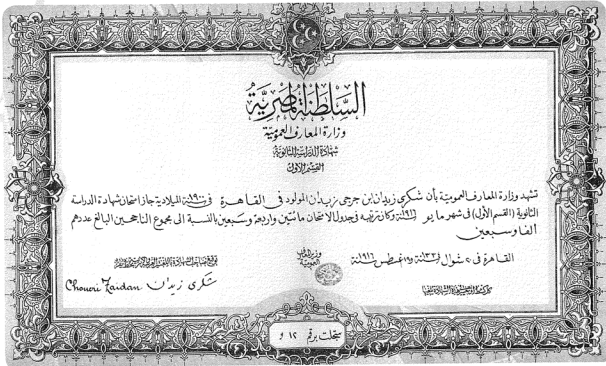 السلطنة المصرية
وزارة المعارف العمومية
شهادة الدراسة الثانوية
القسم الأول
تشهد وزارة المعارف العمومية بأن شكري زيدان ابن جرجي زيدان المولود في القاهرة في سنة ١٩٠٠ الميلادية جاز امتحان شهادة الدراسة
الثانوية (القسم الأول) في شهر مايو سنة ١٩١٦ وكان ترتيبه في جدول الامتحان مائتين واربعة وسبعين بالنسبة الى مجموع الناجحين البالغ عددهم
الفا وسبعين
القاهرة في ٢٠ شوال سنة ١٣٣٤ و ١٩ اغسطس سنة ١٩١٦
وزير المعارف
العمومية
شكري زيدان Choucri Zaidan
سجلت برقم ١٢ و